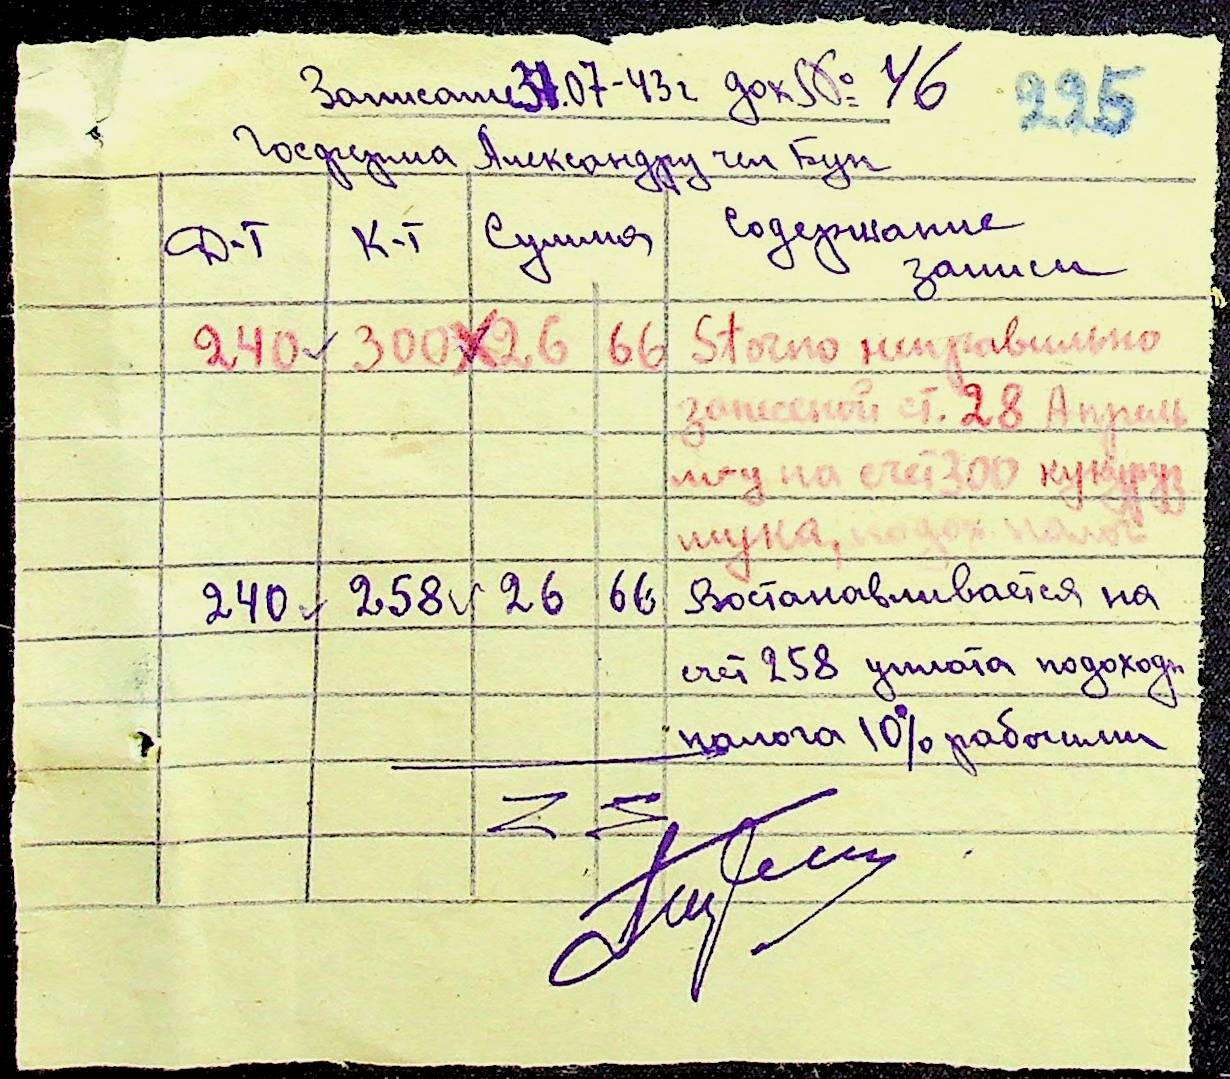 Записано 31.07-43г док № 46
225
Госферма Александру чел Бун
Д-т К-т Сумма Содержание
записи
240 300 26 66 Storno неправильно
занесеной ст. 28 Апрель
м-у на счет 300 кукуруз
мука, подох. налог
240 258 26 66 Востанавливается на
счет 258 уплата подоходн
налога 10% рабочими